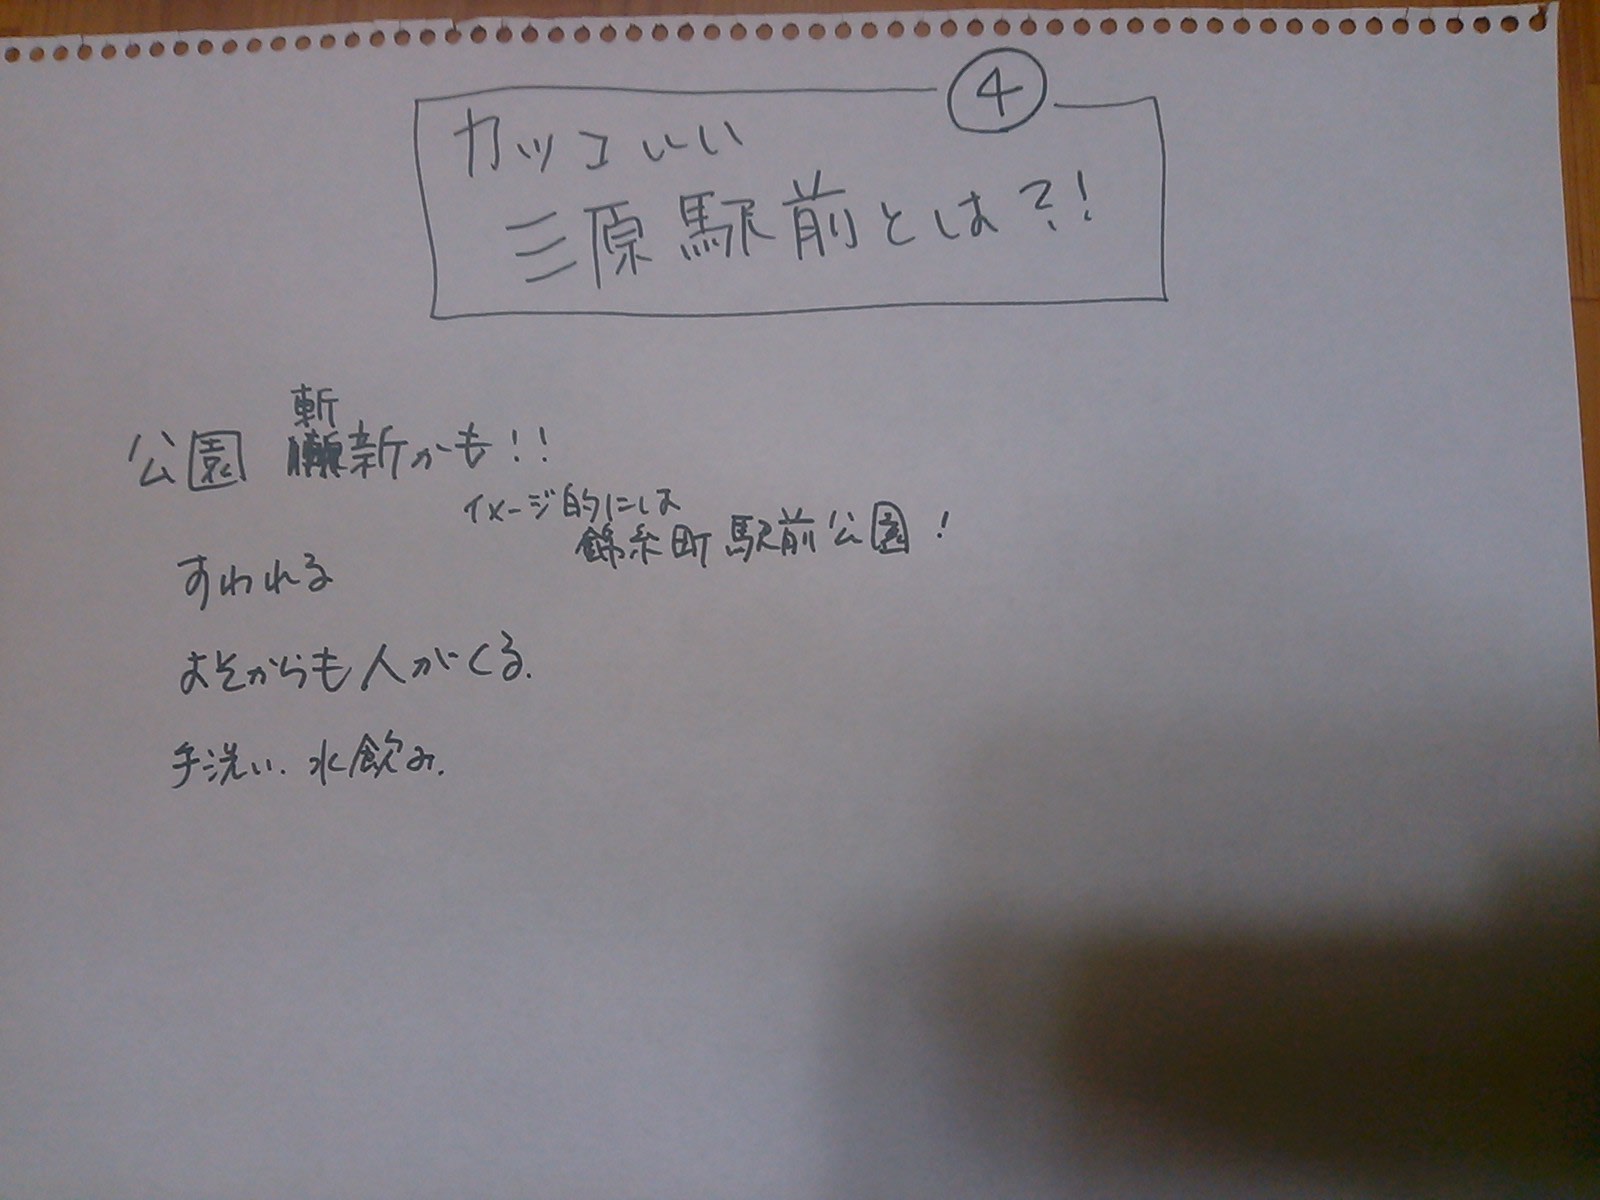 ④
カッコいい
三原駅前とは?!
公園 斬新かも!!
イメージ的には
錦糸町駅前公園!
すわれる
よそからも人がくる.
手洗い. 水飲み.